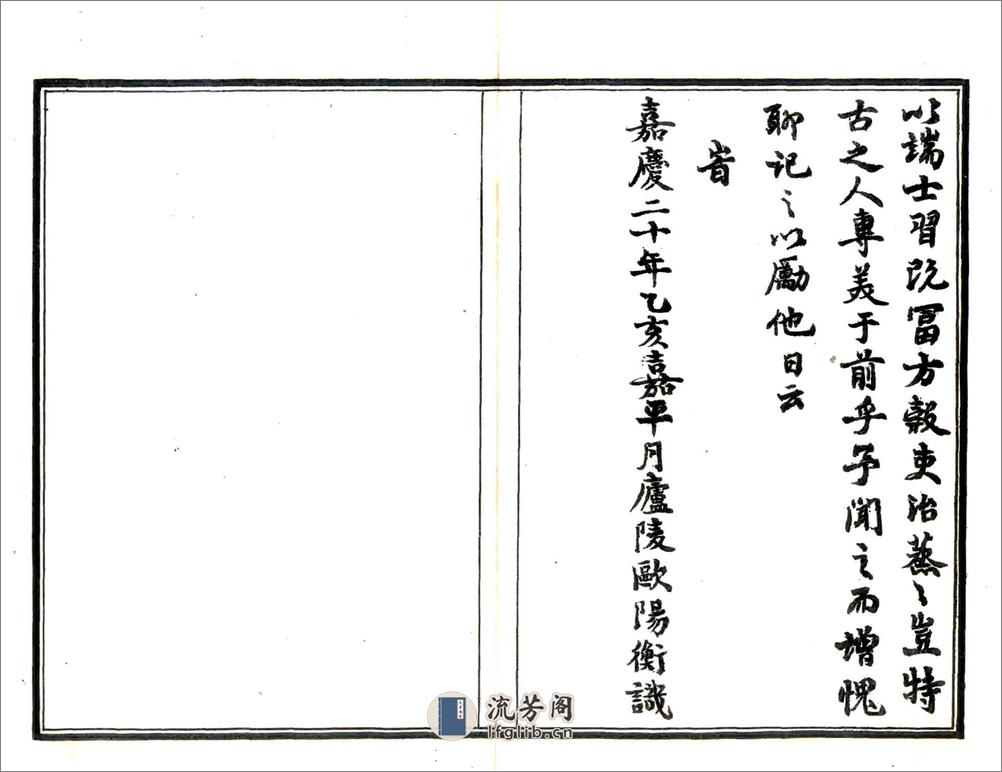 以端士習既冨方穀吏治蒸〻豈特
古之人專美于前乎予聞之而增愧
聊記之以勵他日云
旹
嘉慶二十年乙亥嘉平月廬陵歐陽衡識
流芳阁
lfglib.cn